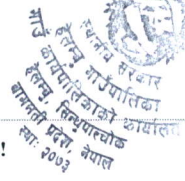 स्थानीय सरकार
गाउँपालिका
गाउँ कार्यपालिकाको कार्यालय
सिन्धुपाल्चोक
बागमती प्रदेश, नेपाल
स्था: २०७३
!